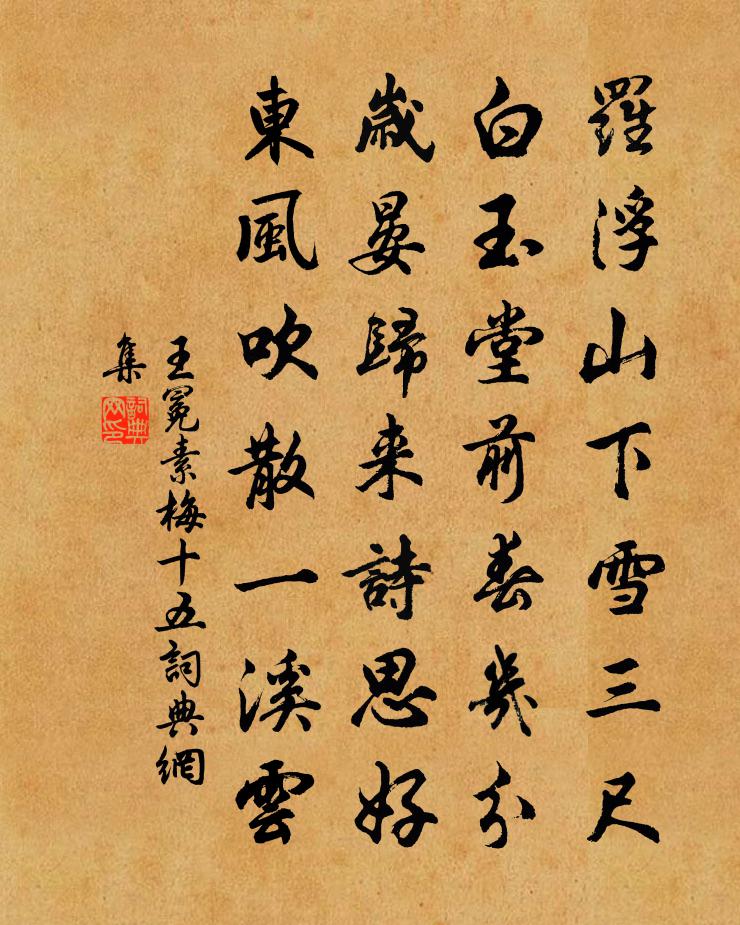 羅浮山下雪三尺
白玉堂前春幾分
歲晏歸來詩思好
東風吹散一溪雲
王冕素梅十五詞典網
集
詞典
網印